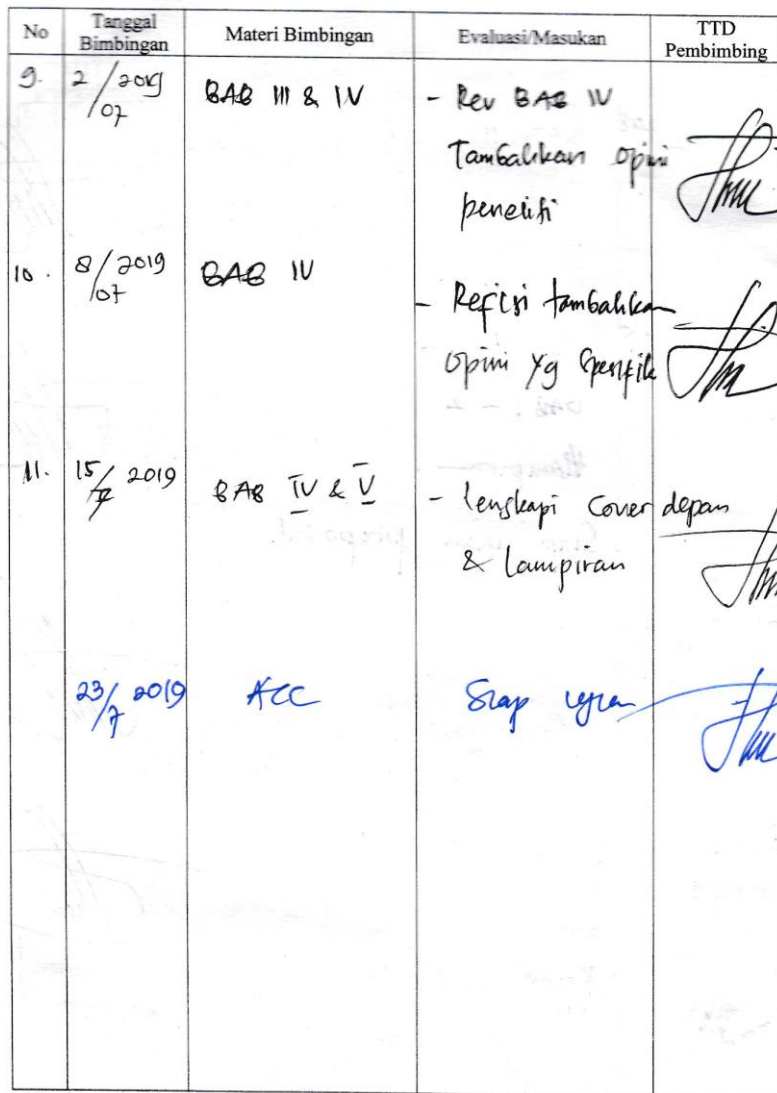 No Tanggal Bimbingan Materi Bimbingan Evaluasi/Masukan TTD Pembimbing
9. 2/07 2019 BAB III & IV - Rev BAB IV
Tambahkan opini
peneliti
10. 8/07 2019 BAB IV - Refisi tambahkan
opini yg spesifik
11. 15/7 2019 BAB IV & V - lengkapi Cover depan
& lampiran
23/7 2019 ACC Siap ujian